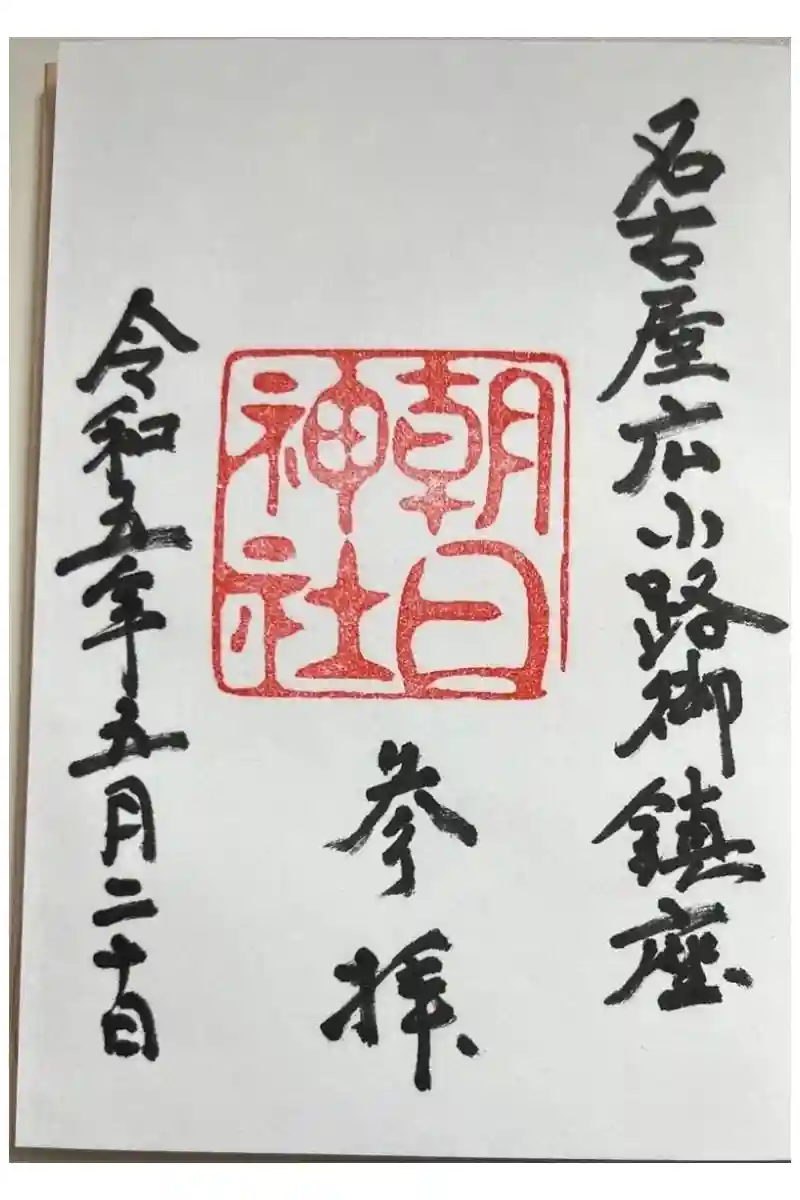 名古屋広小路御鎮座
朝日
神社
参拝
令和五年五月二十日